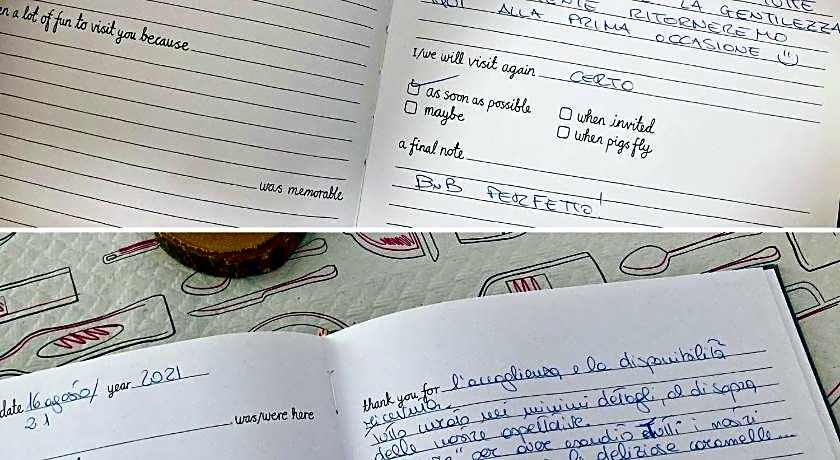 en a lot of fun to visit you because
was memorable
LA GENTILEZZA
QUI ALLA PRIMA
RITORNEREMO
OCCASIONE
I/we will visit again CERTO
as soon as possible
maybe
when invited
when pigs fly
a final note
BnB PERFETTO!
date 16 agosto/ year 2021
21
was/were here
thank you for l'accoglienza e la disponibilità
tutto curato nei minimi dettagli, al di sopra
delle nostre aspettative.
per aver esaudito tutti i nostri
deliziose caramelle...